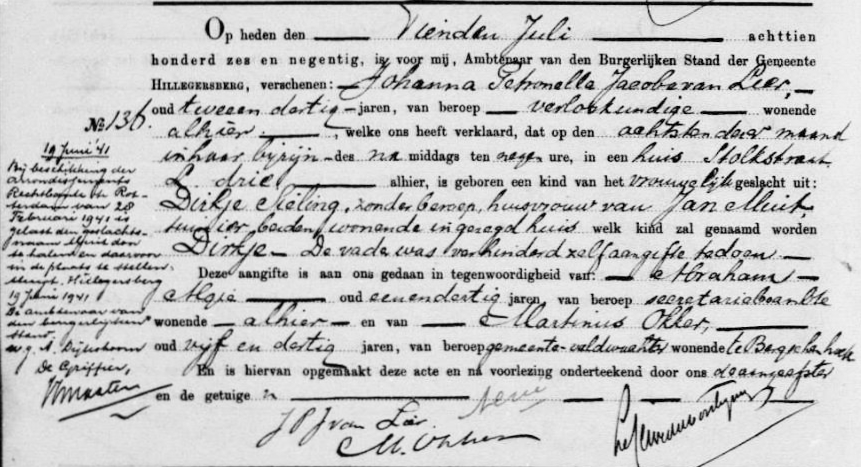 Op heden den Vienden Juli achttien
honderd zes en negentig, is voor mij, Ambtenaar van den Burgerlijken Stand der Gemeente
HILLEGERSBERG, verschenen: Johanna Petronella Jacoba van Leer,
oud twee en dertig jaren, van beroep verloskundige wonende
No 136.
alhier, welke ons heeft verklaard, dat op den achtsten deer maand
in haar bijzijn des na middags ten negen ure, in een huis Stolkstraat
L. drie alhier, is geboren een kind van het vrouwelijk geslacht uit:
Dirkje Sieling, zonder beroep, huisvrouw van Jan Muit,
tuinier, beiden wonende in gezegd huis welk kind zal genaamd worden
Dirkje - De vader was verhinderd zelf aangifte te doen.
Deze aangifte is aan ons gedaan in tegenwoordigheid van: Abraham
oud eenendertig jaren, van beroep secretariebeambte
wonende alhier en van Martinus Okker,
oud vijf en dertig jaren, van beroep gemeente-veldwachter wonende te Bergschenhoek
En is hiervan opgemaakt deze acte en na voorlezing onderteekend door ons de aangeefster
en de getuige
J P J van Leer
M. Okker
19 Juni '41
Bij beschikking der
Arrondissements
Rechtbank te Rot-
terdam van 28
Februari 1941 is
gelast den geslachts-
naam Muit door
te halen en daarvoor
in de plaats te stellen
Hillegersberg
19 Juni 1941
De ambtenaar van
den burgerlijken
stand
w.g. A. Dijkshoorn
De Griffier,